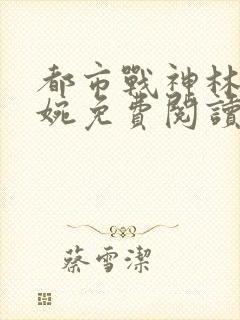 都市戰神林
婉免費閱讀
蔡雪潔